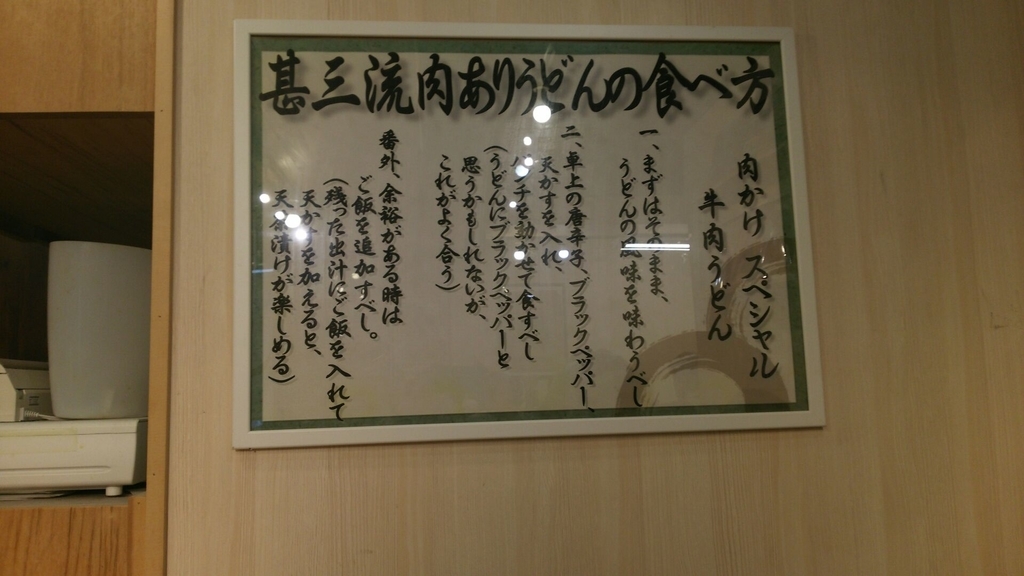 甚三流肉ありうどんの食べ方
肉かけ スペシャル
牛肉うどん
一、まずはそのまま、
うどんの風味を味わうべし
二、卓上の唐辛子、ブラックペッパー、
天かすを入れ、
パンチを効かせて食すべし
(うどんにブラックペッパーと
思うかもしれないが、
これがよく合う)
番外、余裕がある時は
ご飯を追加すべし。
(残った出汁にご飯を入れて
天かすを加えると、
天茶漬けが楽しめる)